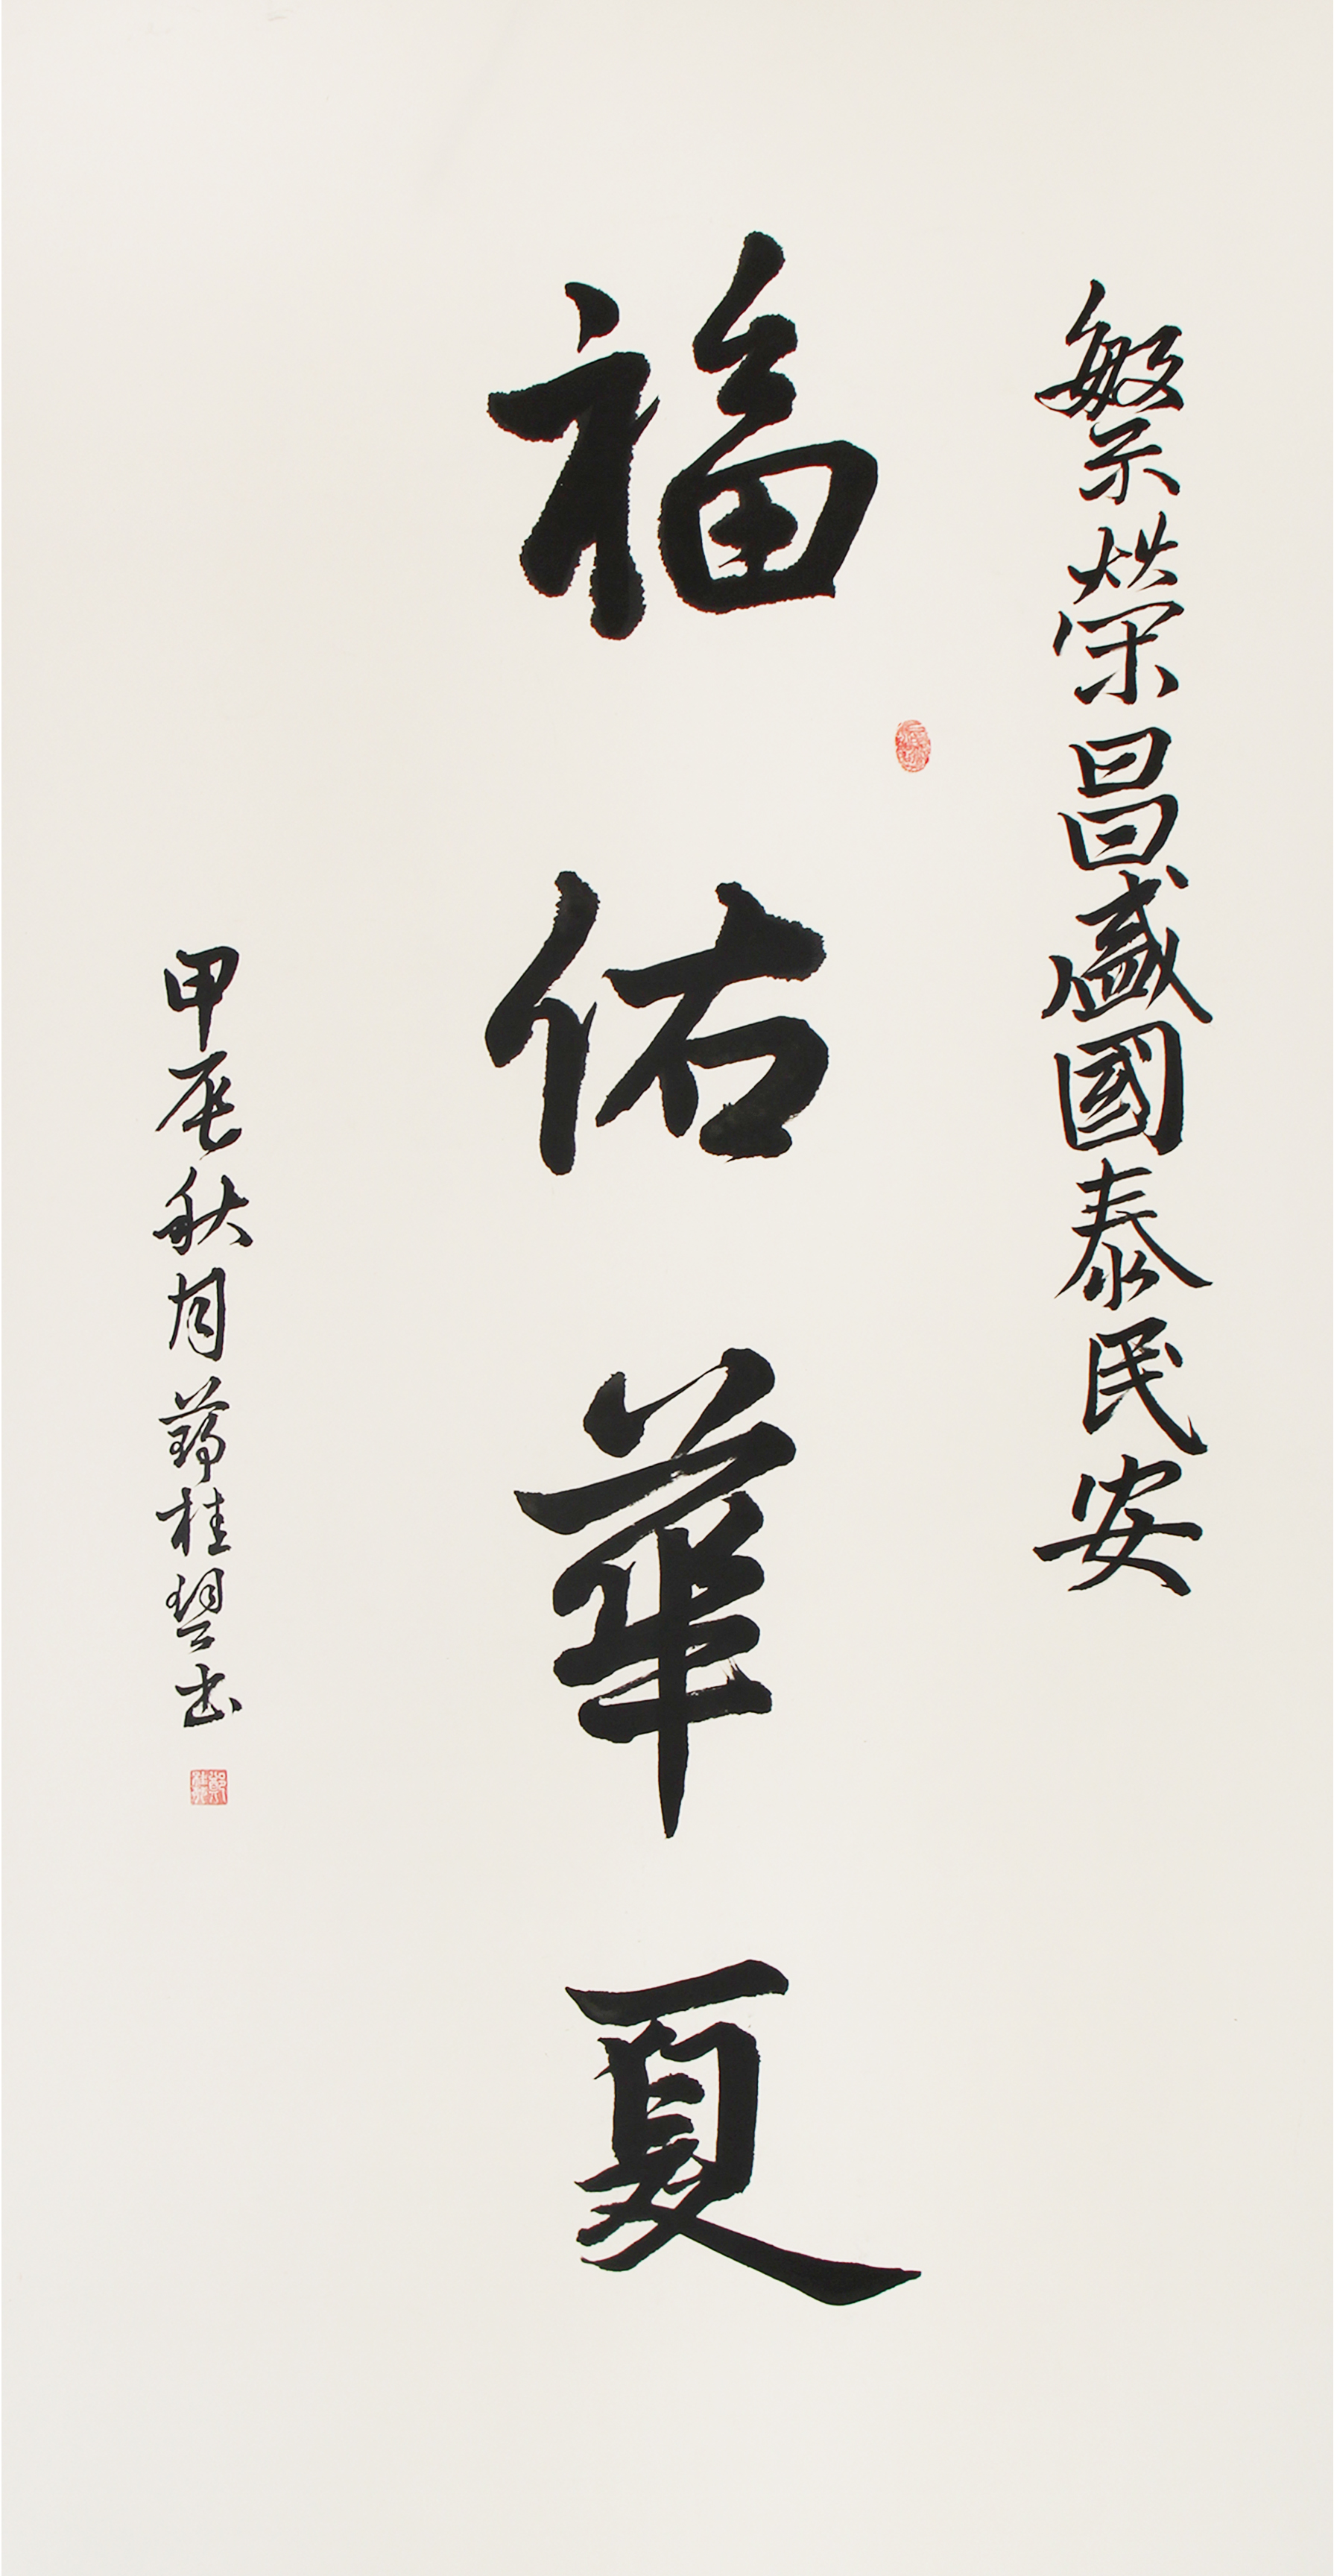 繁榮昌盛國泰民安
福佑華夏
甲辰秋月桂书